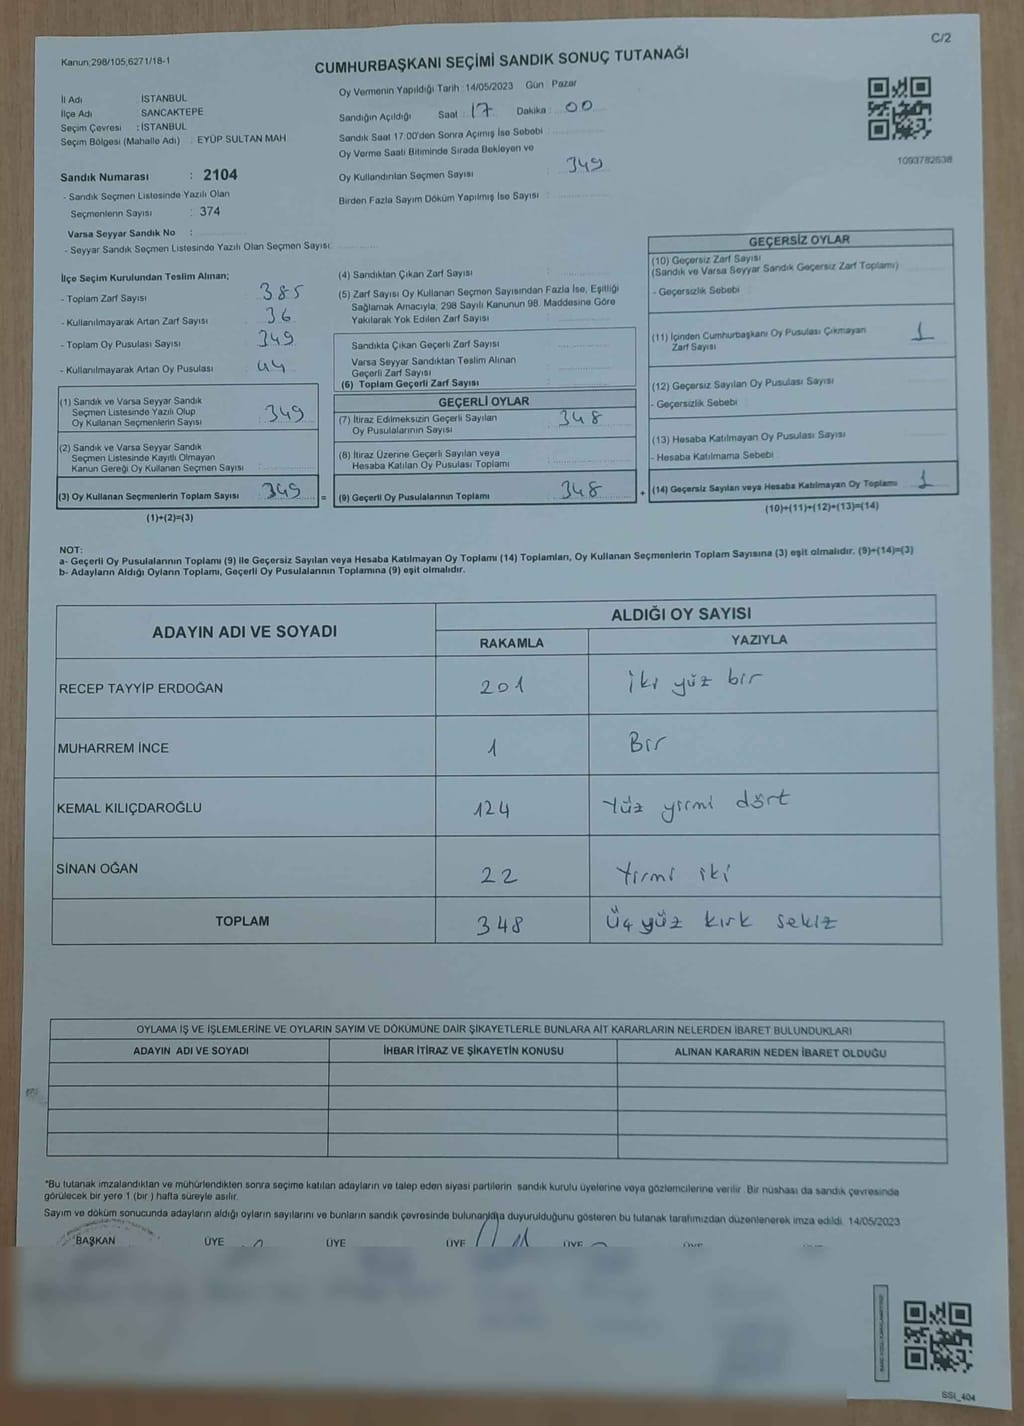 C/2
Kanun;298/105,6271/18-1
CUMHURBAŞKANI SEÇİMİ SANDIK SONUÇ TUTANAĞI
İl Adı İSTANBUL
İlçe Adı SANCAKTEPE
Seçim Çevresi : İSTANBUL
Seçim Bölgesi (Mahalle Adı) : EYÜP SULTAN MAH
Oy Vermenin Yapıldığı Tarih :14/05/2023 Gün : Pazar
Sandığın Açıldığı Saat 17 Dakika 00
Sandık Saat 17:00'den Sonra Açımış İse Sebebi
Oy Verme Saati Bitiminde Sırada Bekleyen ve
Oy Kullandırılan Seçmen Sayısı : 349
Birden Fazla Sayım Döküm Yapılmış İse Sayısı :
1093782638
Sandık Numarası : 2104
- Sandık Seçmen Listesinde Yazılı Olan
Seçmenlerin Sayısı : 374
Varsa Seyyar Sandık No :
- Seyyar Sandık Seçmen Listesinde Yazılı Olan Seçmen Sayısı:
İlçe Seçim Kurulundan Teslim Alınan;
- Toplam Zarf Sayısı 385
- Kullanılmayarak Artan Zarf Sayısı : 36
- Toplam Oy Pusulası Sayısı : 349
- Kullanılmayarak Artan Oy Pusulası : 44
(1) Sandık ve Varsa Seyyar Sandık
Seçmen Listesinde Yazılı Olup
Oy Kullanan Seçmenlerin Sayısı : 349
(2) Sandık ve Varsa Seyyar Sandık
Seçmen Listesinde Kayıtlı Olmayan
Kanun Gereği Oy Kullanan Seçmen Sayısı
(3) Oy Kullanan Seçmenlerin Toplam Sayısı : 349 =
(1)+(2)=(3)
(4) Sandıktan Çıkan Zarf Sayısı
(5) Zarf Sayısı Oy Kullanan Seçmen Sayısından Fazla İse, Eşitliği
Sağlamak Amacıyla, 298 Sayılı Kanunun 98. Maddesine Göre
Yakılarak Yok Edilen Zarf Sayısı
Sandıkta Çıkan Geçerli Zarf Sayısı
Varsa Seyyar Sandıktan Teslim Alınan
Geçerli Zarf Sayısı
(6) Toplam Geçerli Zarf Sayısı
GEÇERLİ OYLAR
(7) İtiraz Edilmeksizin Geçerli Sayılan
Oy Pusulalarının Sayısı : 348
(8) İtiraz Üzerine Geçerli Sayılan veya
Hesaba Katılan Oy Pusulası Toplamı
(9) Geçerli Oy Pusulalarının Toplamı 348 +
GEÇERSİZ OYLAR
(10) Geçersiz Zarf Sayısı
(Sandık ve Varsa Seyyar Sandık Geçersiz Zarf Toplamı)
- Geçersizlik Sebebi
(11) İçinden Cumhurbaşkanı Oy Pusulası Çıkmayan
Zarf Sayısı 1
(12) Geçersiz Sayılan Oy Pusulası Sayısı
- Geçersizlik Sebebi
(13) Hesaba Katılmayan Oy Pusulası Sayısı
- Hesaba Katılmama Sebebi
(14) Geçersiz Sayılan veya Hesaba Katılmayan Oy Toplamı 1
(10)+(11)+(12)+(13)=(14)
NOT:
a- Geçerli Oy Pusulalarının Toplamı (9) ile Geçersiz Sayılan veya Hesaba Katılmayan Oy Toplamı (14) Toplamları, Oy Kullanan Seçmenlerin Toplam Sayısına (3) eşit olmalıdır. (9)+(14)=(3)
b- Adayların Aldığı Oyların Toplamı, Geçerli Oy Pusulalarının Toplamına (9) eşit olmalıdır.
ADAYIN ADI VE SOYADI ALDIĞI OY SAYISI
RAKAMLA YAZIYLA
RECEP TAYYİP ERDOĞAN 201 İki yüz bir
MUHARREM İNCE 1 Bir
KEMAL KILIÇDAROĞLU 124 Yüz yirmi dört
SİNAN OĞAN 22 Yirmi iki
TOPLAM 348 Üç yüz kırk sekiz
OYLAMA İŞ VE İŞLEMLERİNE VE OYLARIN SAYIM VE DÖKÜMÜNE DAİR ŞİKAYETLERLE BUNLARA AİT KARARLARIN NELERDEN İBARET BULUNDUKLARI
ADAYIN ADI VE SOYADI İHBAR İTİRAZ VE ŞİKAYETİN KONUSU ALINAN KARARIN NEDEN İBARET OLDUĞU
*Bu tutanak imzalandıktan ve mühürlendikten sonra seçime katılan adayların ve talep eden siyasi partilerin sandık kurulu üyelerine veya gözlemcilerine verilir. Bir nüshası da sandık çevresinde
görülecek bir yere 1 (bir ) hafta süreyle asılır.
Sayım ve döküm sonucunda adayların aldığı oyların sayılarını ve bunların sandık çevresinde bulunanlara duyurulduğunu gösteren bu tutanak tarafımızdan düzenlenerek imza edildi. 14/05/2023
BAŞKAN ÜYE ÜYE ÜYE ÜYE
SSI_404